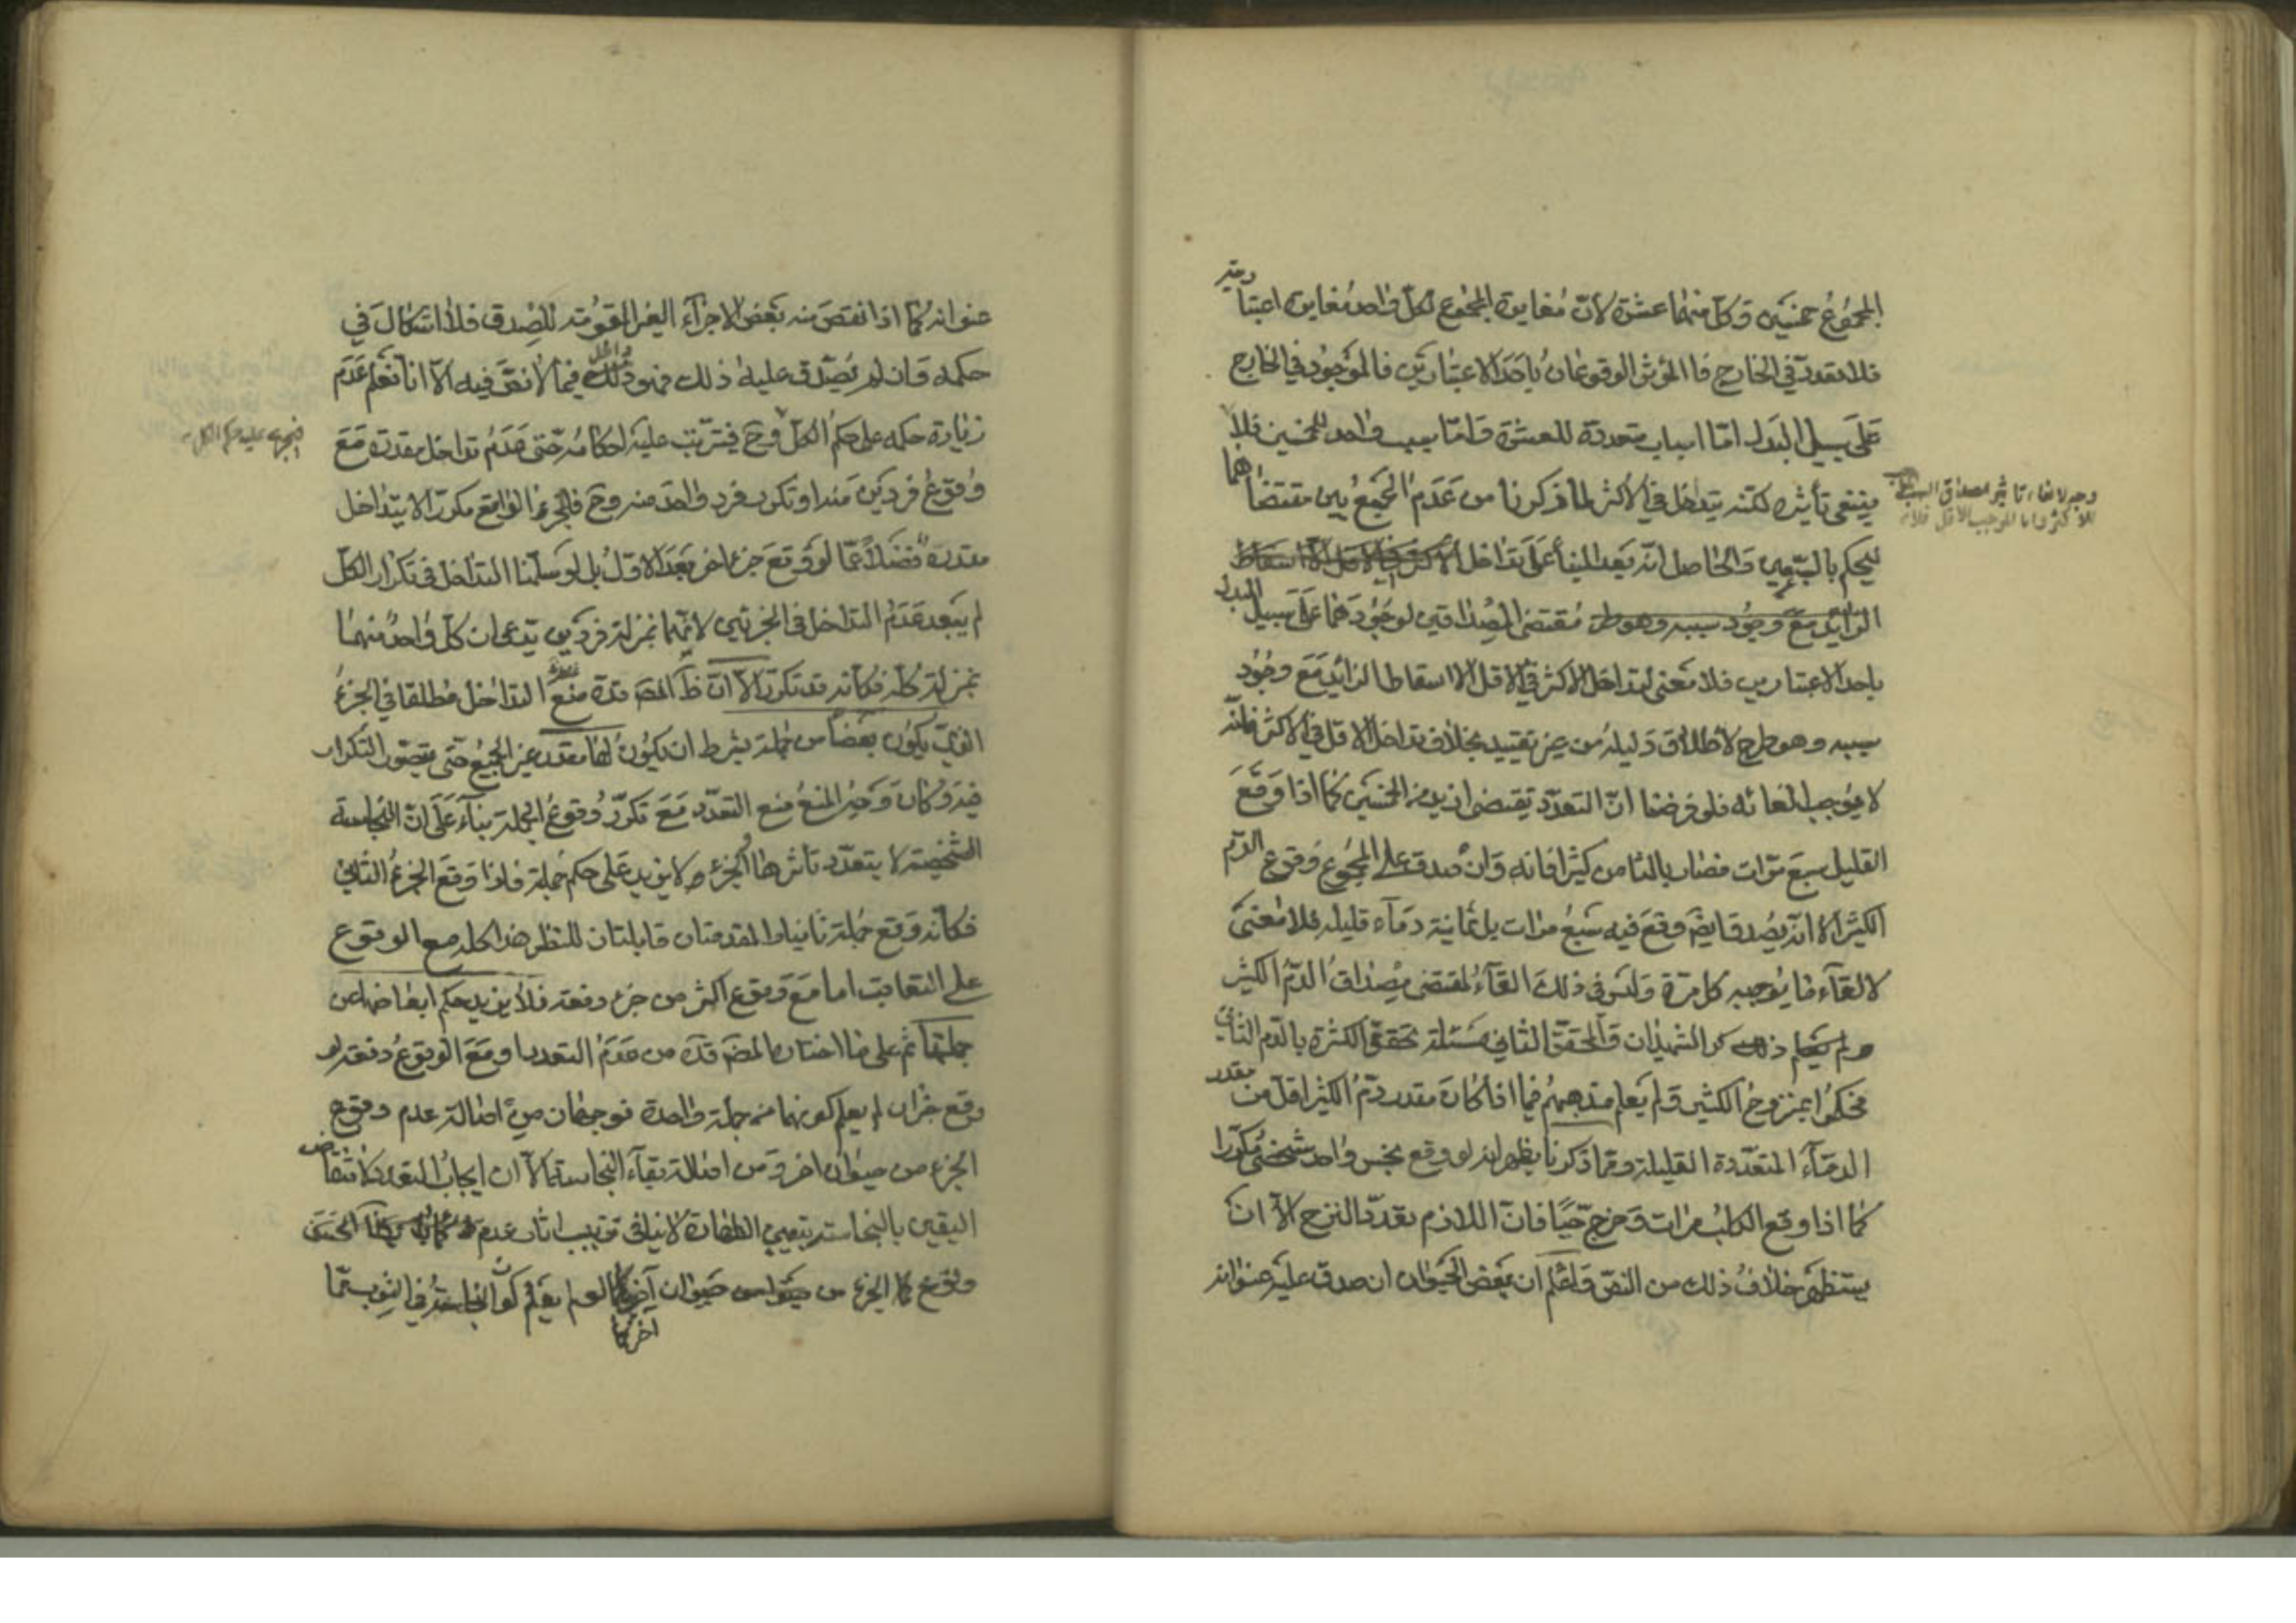 المجموع خمسين وكل منهما عشرة لان مغايرة المجموع لكل واحد مغايرة اعتبارية
فلا تعدد في الخارج فالمؤثر الوقوعان باحد الاعتبارين فالموجود في الخارج
على سبيل البدل اما اسباب متعددة للعشرة واما سبب واحد للخمسين فلا
ينتفى تأثيره لكنه يتداخل في الأكثر لما ذكرنا من عدم الجمع بين مقتضاهما
وجه لالغاء تاثير مصداق السبب
للاكثر واما الموجب للاقل فلانه
للحكم بالتبعين والحاصل انه بعد البناء على تداخل الاكثر في الاقل الا اسقاط
الزايد مع وجود سببه وهو طرح مقتضى المصداقين لوجودهما على سبيل البدل
باحد الاعتبارين فلا معنى لتداخل الاكثر في الاقل الا اسقاط الزايد مع وجود
سببه وهو طرح لاطلاق دليله من غير تقييد بخلاف تداخل الاقل في الاكثر فانه
لا يوجب الغائه فلو فرضنا ان التعدد يقتضى ازيد من الخمسين كما اذا وقع
القليل سبع مرات فصار بالثامن كثيرا فانه وان صدق على المجموع وقوع الدم
الكثير الا انه يصدق ايضا وقع فيه سبع مرات بل ثمانية دماء قليلة فلا معنى
لالغاء ما يوجبه كل مرة وليس في ذلك الغاء لمقتضى مصداق الدم الكثير
ولم ذكر الشهيدان والمحقق الثاني مسئلة تحقق الكثرة بالدم الثاني
فحكموا بمنزوح الكثير ولم يعلم مذهبهم فيما اذا كان مقدر دم الكثير اقل من مقدر
الدماء المتعددة القليلة ومما ذكرنا يظهر انه لو وقع نجس واحد شخصى مكررا
كما اذا وقع الكلب مرات وخرج حيا فان اللازم تعدد النزح الا ان
يستظهر خلاف ذلك من النص واعلم ان بعض الحيوان ان صدق عليه عنوانه
عنوانه كما اذا نقص منه بعض الاجزاء الغير المقومة للصدق فلا اشكال في
حكمه وان لم يصدق عليه ذلك فهو داخل فيما لا نص فيه الا انا نعلم عدم
زيادة حكمه على حكم الكل وح فيترتب عليه احكامه حتى عدم تداخل مقدره مع
فيجرى عليه حكم الكل
وقوع فردين منه او تكرر فرد واحد منه وح فالجزء الواقع مكررا لا يتداخل
مقدره فضلا عما لو وقع جزء اخر بعد الاول بل لو سلمنا التداخل في تكرار الكل
لم يبعد عدم التداخل في الجزئين لانهما بمنزلة فردين يدعى ان كل واحد منهما
بمنزلة كله فكانه قد تكرر الا ان ظ المص قده منع التداخل مطلقا في الجزء
الذي يكون بعضا من جملة بشرط ان يكون لها مقدر غير الجميع حتى يتصور التكرار
فيه وكان وجه المنع منع التعدد مع تكرر وقوع الجملة بناء على ان النجاسة
الشخصية لا يتعدد تاثرها الجزء ولا يزيد على حكم جملة فاذا وقع الجزء الثاني
فكانه وقع جملة ثانيا والمقدمتان قابلتان للنظر هذا كله مع الوقوع
على التعاقب اما مع وقوع اكثر من جزء دفعة فلا يزيد حكم ابعاضها عن
جملتها ثم على ما اختاره المص قده من عدم التعدد او مع الوقوع دفعة لو
وقع جزءان لم يعلم كونهما من جملة واحدة فوجهان من اصالة عدم وقوع
الجزء من حيوان اخر ومن اصالة بقاء النجاسة الا ان ايجاب التعدد كانتقاض
اليقين بالنجاسة بتعيين الطهارة لا ينافى ترتيب اثار عدم
وقوع الجزء من حيوان آخر كما لو لم يعلم كون النجاسة في الثوب مما
آخر كما